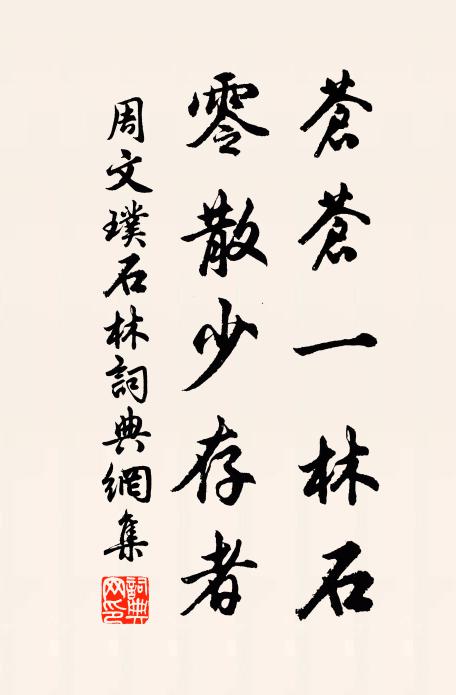 蒼蒼一林石
零散少存者
周文璞石林詞典網集
詞典网印